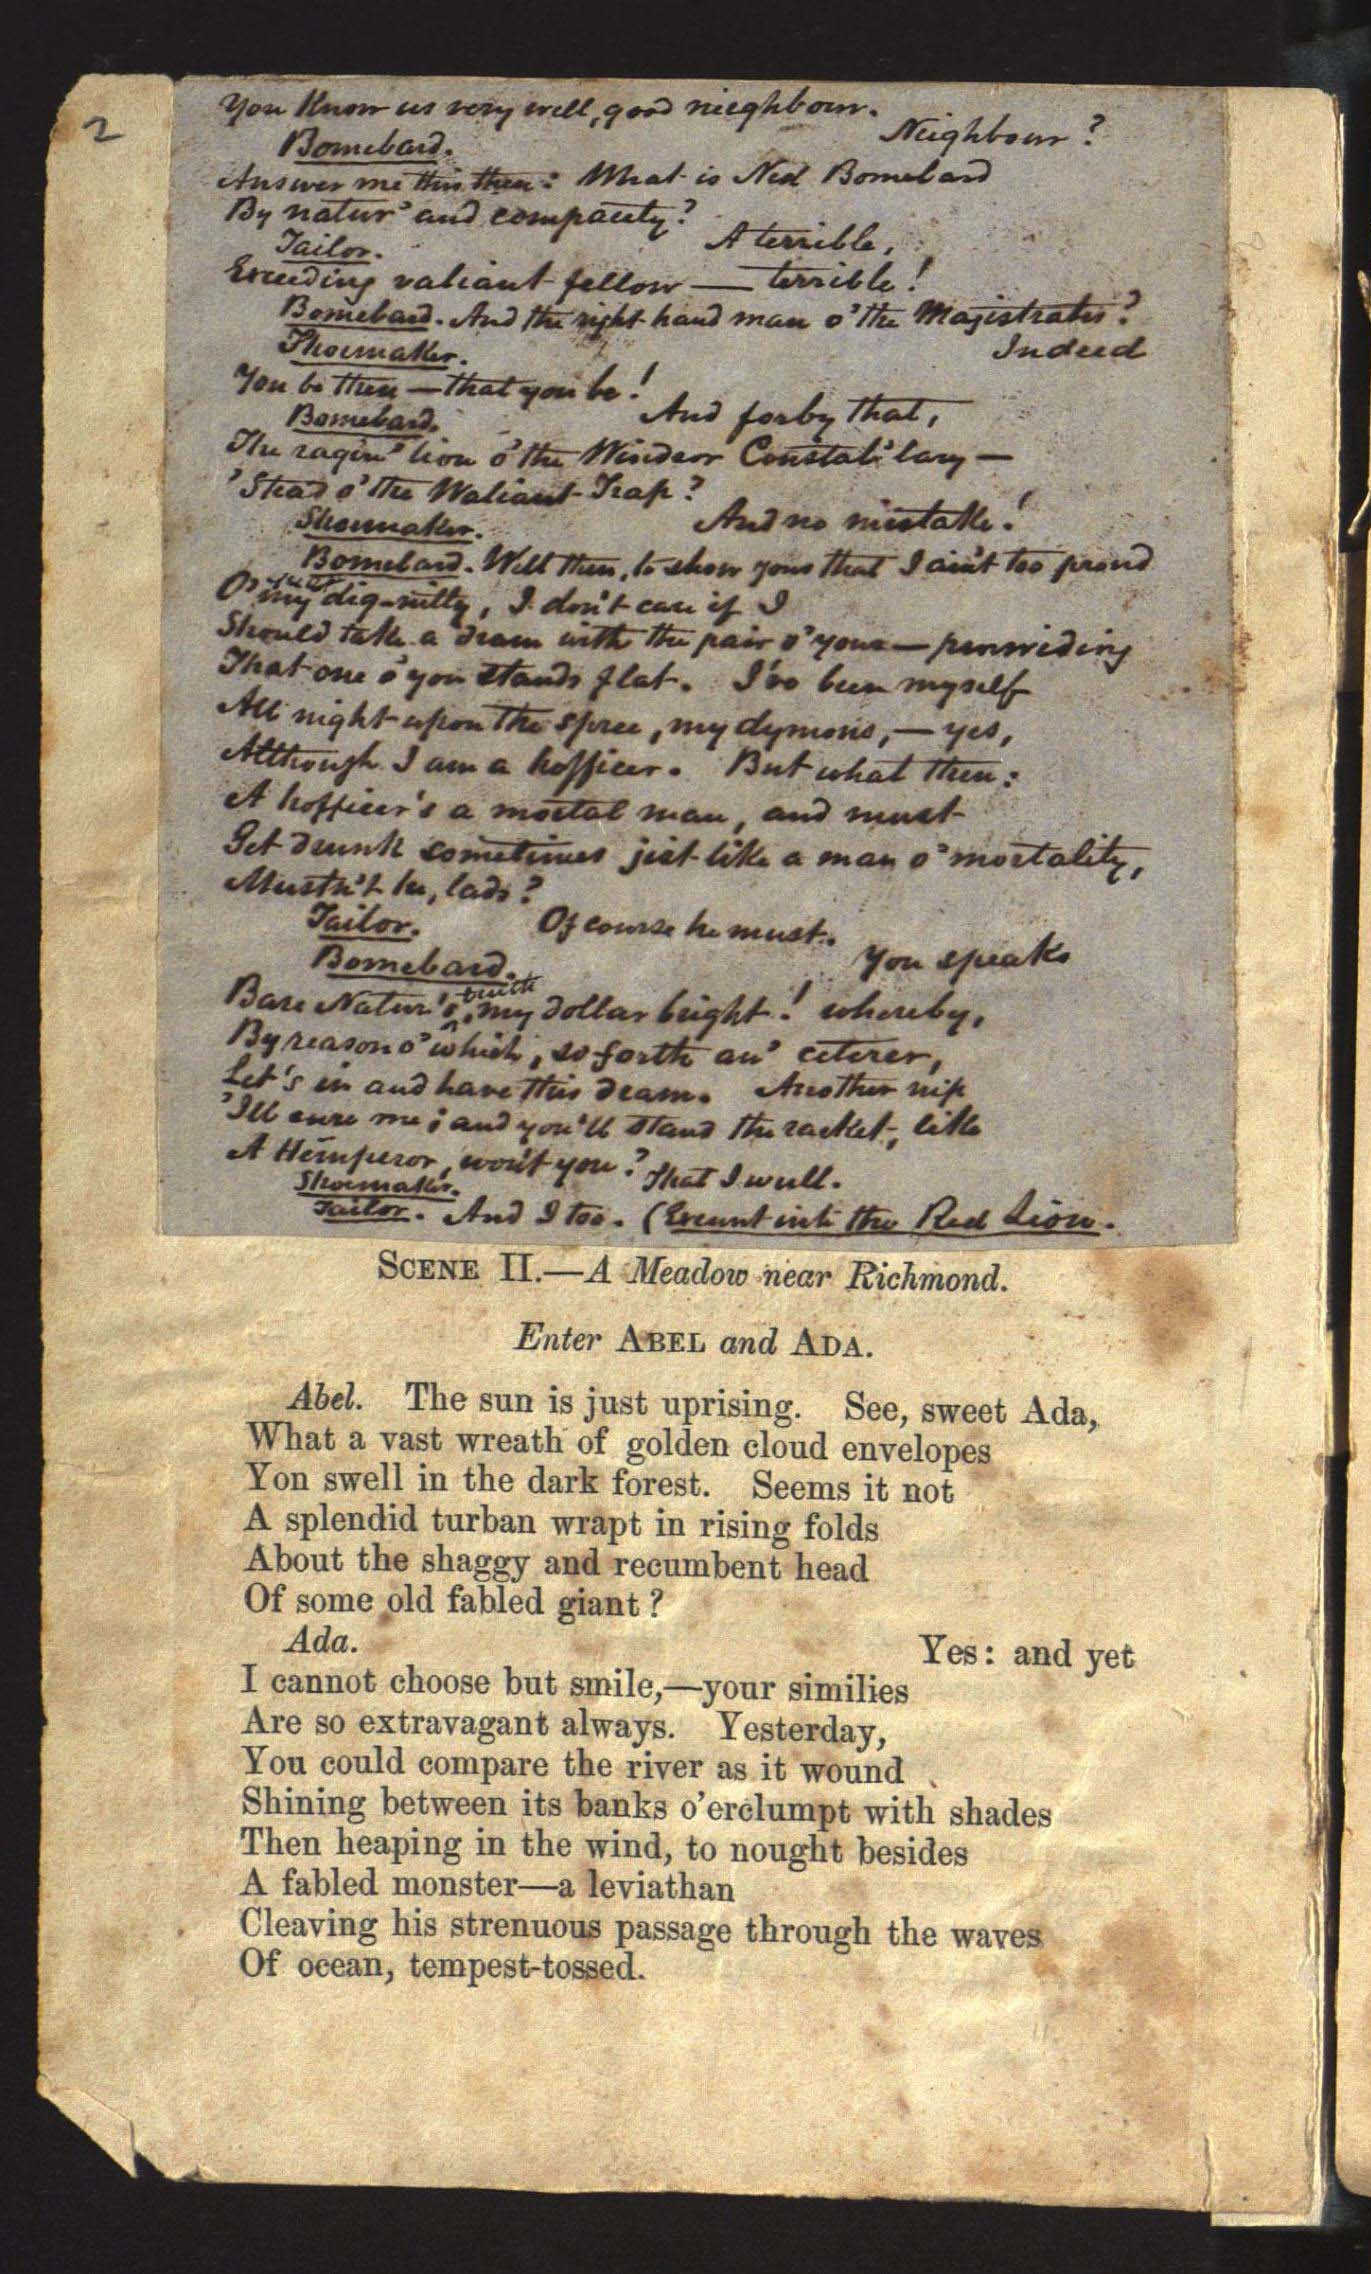 2
You Know us very well, good nieghbour.
Bomebard. Neighbour?
Answer me this then: What is Ned Bomebard
By natur' and compacity?
Tailor. A terrible,
Exceeding valiant fellow — terrible!
Bomebard. And the right-hand man o' the Magistrates?
Shoemaker. Indeed
You be then — that you be!
Bomebard. And forby that,
The ragin' lion o' the Windsor Constab'lary —
'Stead o' the Waliant Trap?
Shoemaker. And no mistake!
Bomebard. Well then, to show yous that I ain't too proud
O' my dig-nitty, I don't care if I
Should take a dram with the pair o' yous — purwiding
That one o' you stands flat. I've been myself
All night upon the spree, my dymons, — yes,
Although I am a hofficer. But what then:
A hofficer's a mortal man, and must
Get drunk sometimes jist like a man o' mortality,
Mustn't he, lads?
Tailor. Of course he must.
Bomebard. You speaks
Bare Natur's truth, my dollar bright! whereby,
By reason o' which, so forth an' ceterer,
Let's in and have this dram. Another nip
'Ill cure me; and you'll stand the racket, like
A Hemperor, won't you?
Shoemaker. That I wull.
Tailor. And I too. (Exeunt into the Red Lion.
SCENE II.—A Meadow near Richmond.
Enter ABEL and ADA.
Abel. The sun is just uprising. See, sweet Ada,
What a vast wreath of golden cloud envelopes
Yon swell in the dark forest. Seems it not
A splendid turban wrapt in rising folds
About the shaggy and recumbent head
Of some old fabled giant?
Ada. Yes: and yet
I cannot choose but smile,—your similies
Are so extravagant always. Yesterday,
You could compare the river as it wound
Shining between its banks o'erclumpt with shades
Then heaping in the wind, to nought besides
A fabled monster—a leviathan
Cleaving his strenuous passage through the waves
Of ocean, tempest-tossed.